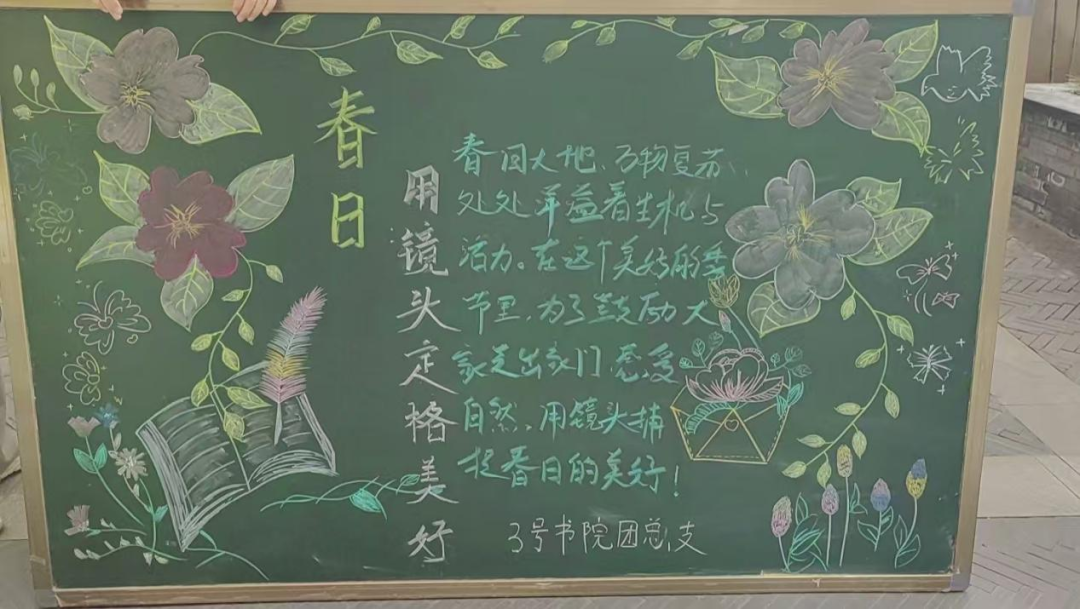 春日
用镜头定格美好
春回大地、万物复苏、
处处洋溢着生机与
活力。在这个美好的季
节里,为了鼓励大
家走出家门感受
自然,用镜头捕
捉春日的美好!
3号书院团总支